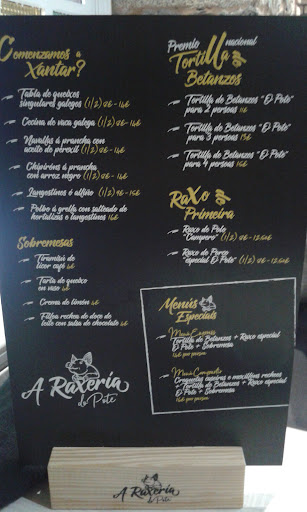 Comenzamos a
Xantar?
Táboa de queixos
singulares galegos (1/2) 9€ - 14€
Cecina de vaca galega (1/2) 9€ - 14€
Navallas á prancha con
aceite de pérexil (1/2) 9€ - 14€
Chipiróns á prancha
con arroz negro (1/2) 9€ - 14€
Langostinos ó alliño (1/2) 9€ - 15€
Polbo á grella con salteado de
hortalizas e langostinos 16€
Sobremesas
Tiramisú de
licor café
Tarta de queixo
en vaso
Crema de limón
Filloa rechea de doce de
leite con salsa de chocolate
A Raxería
do Pote
Premio nacional
Tortilla
de
Betanzos
Tortilla de Betanzos "O Pote"
para 2 persoas 11€
Tortilla de Betanzos "O Pote"
para 3 persoas 15€
Tortilla de Betanzos "O Pote"
para 4 persoas 16€
Raxo de
Primeira
Raxo de Polo
"Campero"
Raxo de Porco
"especial O Pote"
Menús
Especiais
Tortilla de Betanzos + Raxo especial
O Pote + Sobremesa
por persoa
Menú Compartir
Croquetas caseiras e mexillóns recheos
+ Tortilla de Betanzos + Raxo especial
O Pote + Sobremesa
por persoa
A Raxería
do Pote